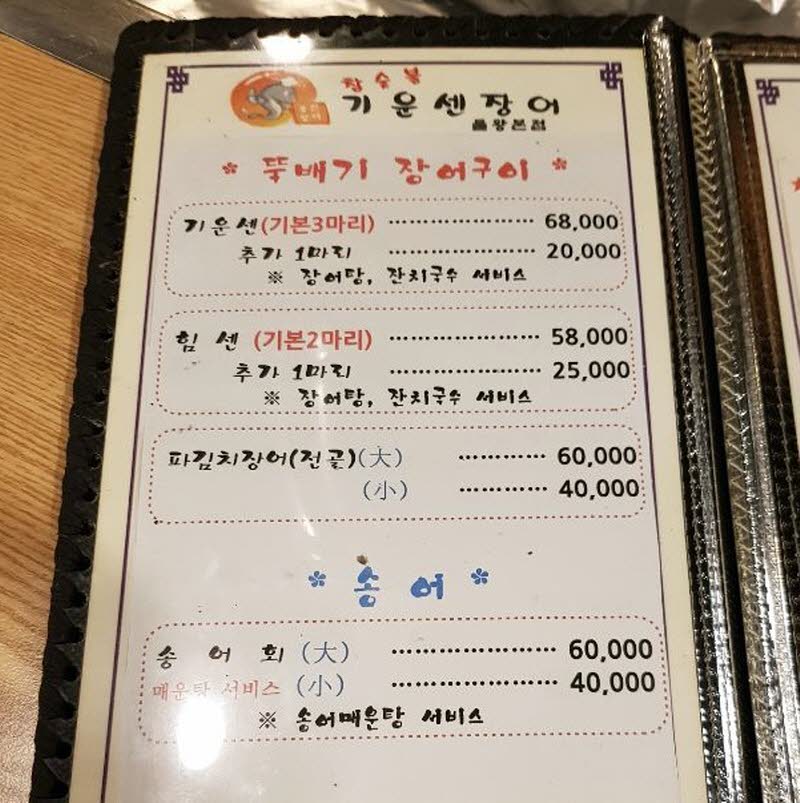 참숯불
기운센장어
의왕본점
* 뚝배기 장어구이 *
기운센(기본3마리) ················ 68,000
추가 1마리 ················ 20,000
※ 장어탕, 잔치국수 서비스
힘 센 (기본2마리) ················ 58,000
추가 1마리 ················ 25,000
※ 장어탕, 잔치국수 서비스
파김치장어(전골)(大) ············ 60,000
(小) ············ 40,000
* 송 어 *
송 어 회 (大) ················ 60,000
매운탕 서비스 (小) ················ 40,000
※ 송어매운탕 서비스